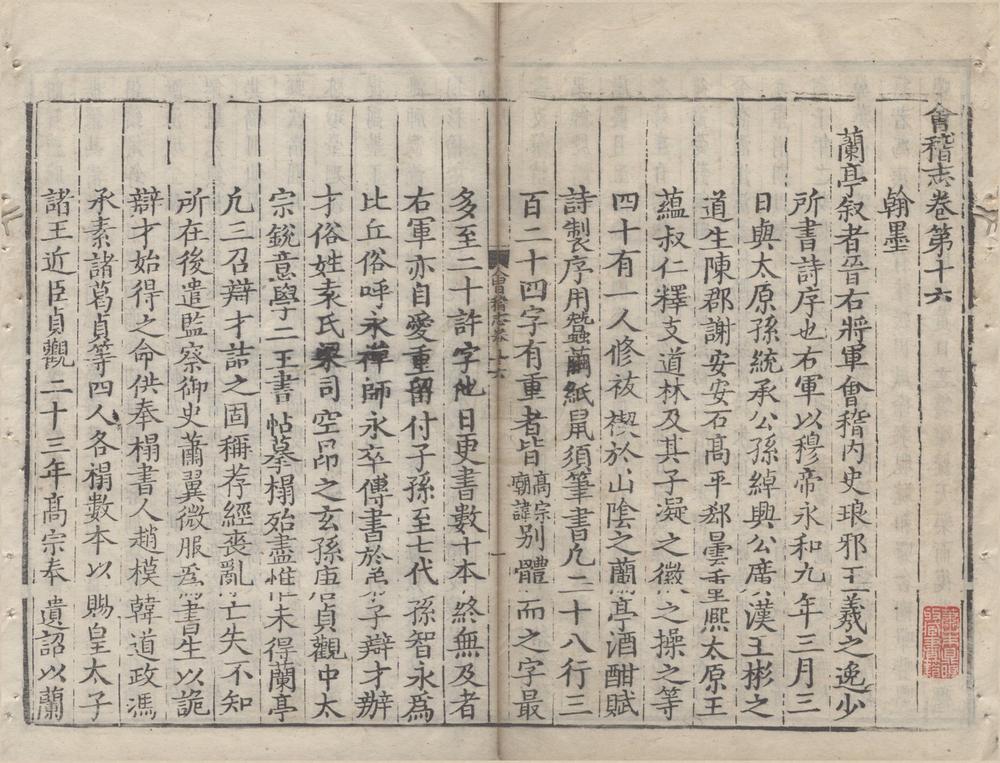 會稽志卷第十六
翰墨
蘭亭叙者晉右將軍會稽内史琅邪王羲之逸少
所書詩序也右軍以穆帝永和九年三月三
日與太原孫統承公孫綽興公廣漢王彬之
道生陳郡謝安安石高平郗曇重熈太原王
蘊叔仁釋支道林及其子凝之徽之操之等
四十有一人修祓禊於山陰之蘭亭酒酣賦
詩製序用蠶繭紙鼠須筆書凢二十八行三
百二十四字有重者皆高宗廟諱别體而之字最
會稽志卷十六
一
多至二十許字他日更書數十本終無及者
右軍亦自愛重留付子孫至七代孫智永爲
比丘俗呼永禪師永卒傳書於弟子辯才辦
才俗姓袁氏梁司空昂之玄孫唐貞觀中太
宗銳意學二王書帖摹榻殆盡惟未得蘭亭
凢三召辯才詰之固稱荐經喪亂亡失不知
所在後遣監察御史蕭翼微服爲書生以詭
辯才始得之命供奉榻書人趙模韓道政馮
承素諸葛貞等四人各榻數本以賜皇太子
諸王近臣貞觀二十三年髙宗奉遺詔以蘭